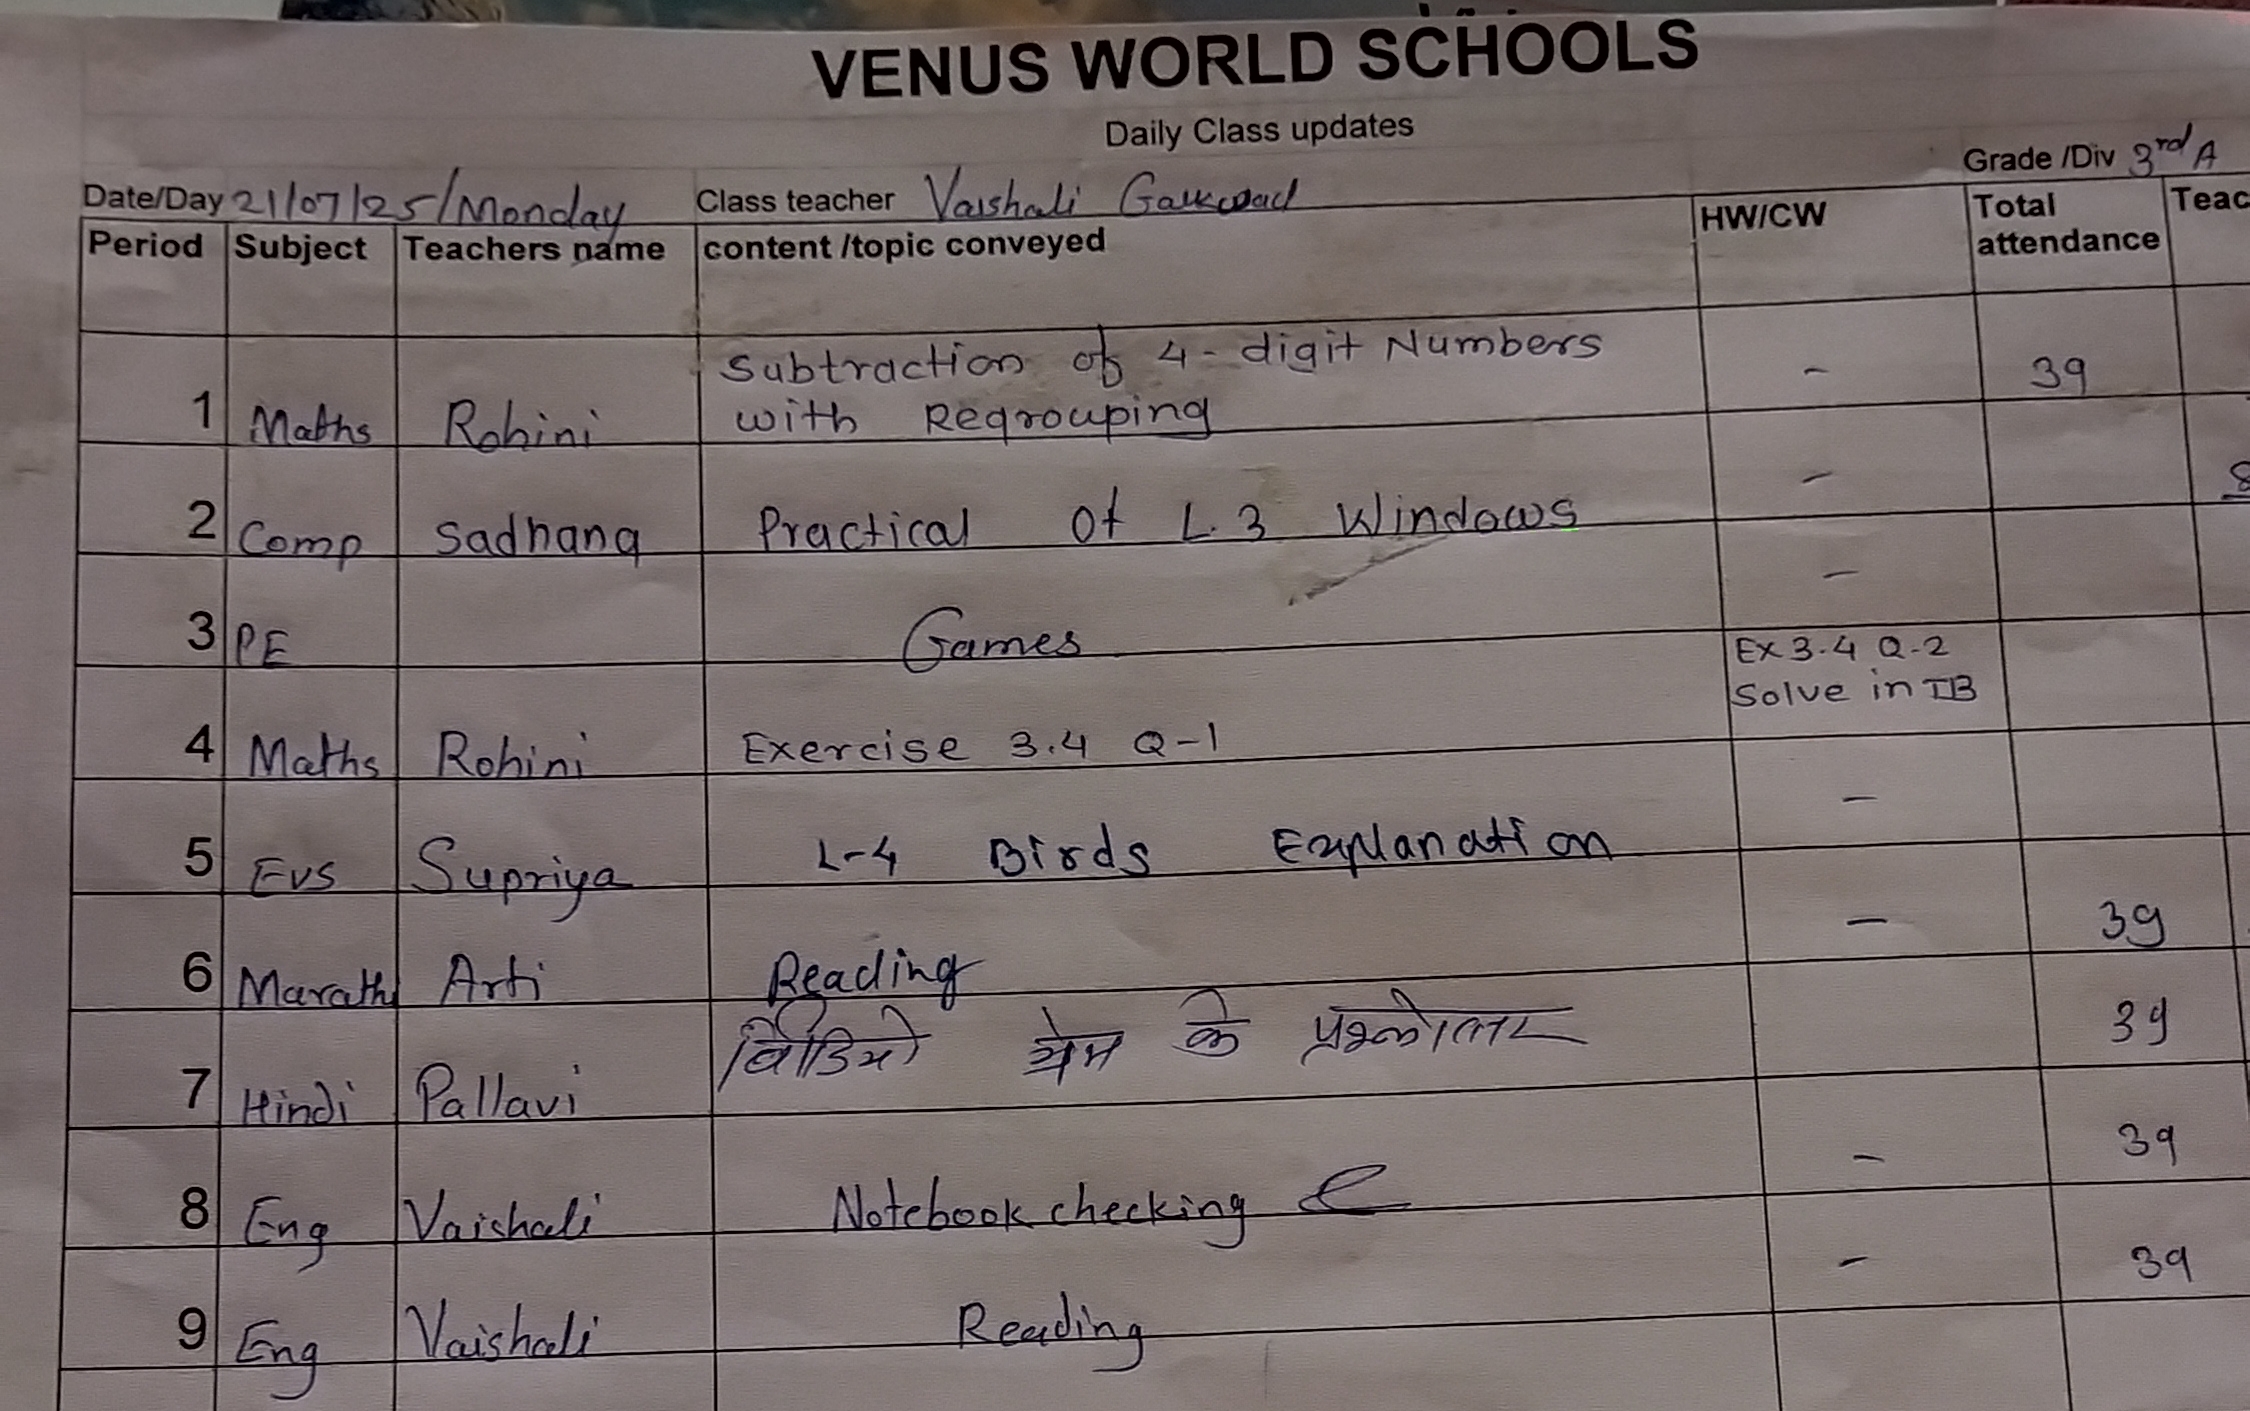 VENUS WORLD SCHOOLS
Daily Class updates
Grade /Div 3rd A
Date/Day 21/07/25/Monday Class teacher Vaishali Gaikwad
Period Subject Teachers name content /topic conveyed HW/CW Total attendance Teac
Subtraction of 4-digit Numbers
1 Maths Rohini with Regrouping - 39
2 Comp Sadhana Practical Of L.3 Windows -
3 PE Games -
Ex 3.4 Q-2
Solve in TB
4 Maths Rohini Exercise 3.4 Q-1
5 Evs Supriya L-4 Birds Explanation -
6 Marathi Arti Reading - 39
7 Hindi Pallavi विडियो गेम के 39
8 Eng Vaishali Notebook checking - 39
9 Eng Vaishali Reading - 39